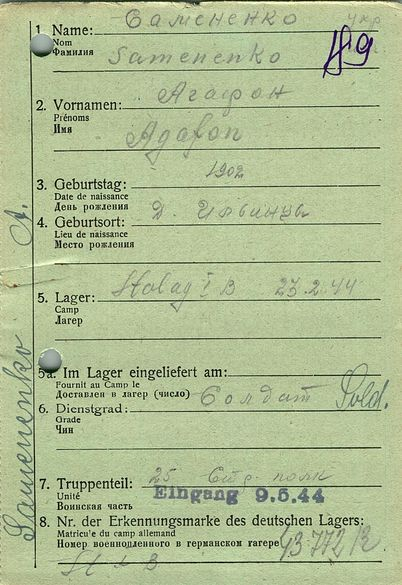 1. Name: Самененко укр
Nom
Фамилия
Samenenko
2. Vornamen: Агафон
Prénoms
Имя
Agafon
3. Geburtstag: 1902
Date de naissance
День рождения
4. Geburtsort: Д.
Lieu de naissance
Место рождения
5. Lager: Stalag I B 23.2.44
Camp
Лагерь
5a. Im Lager eingeliefert am:
Fournit au Camp le
Доставлен в лагерь (число)
6. Dienstgrad: Солдат Sold.
Grade
Чин
7. Truppenteil: 25 Стр полк
Unité
Воинская часть
Eingang 9.5.44
8. Nr. der Erkennungsmarke des deutschen Lagers:
Matricule du camp allemand
Номер военнопленного в германском лагере
43772 IB
St I B
Samenenko A.